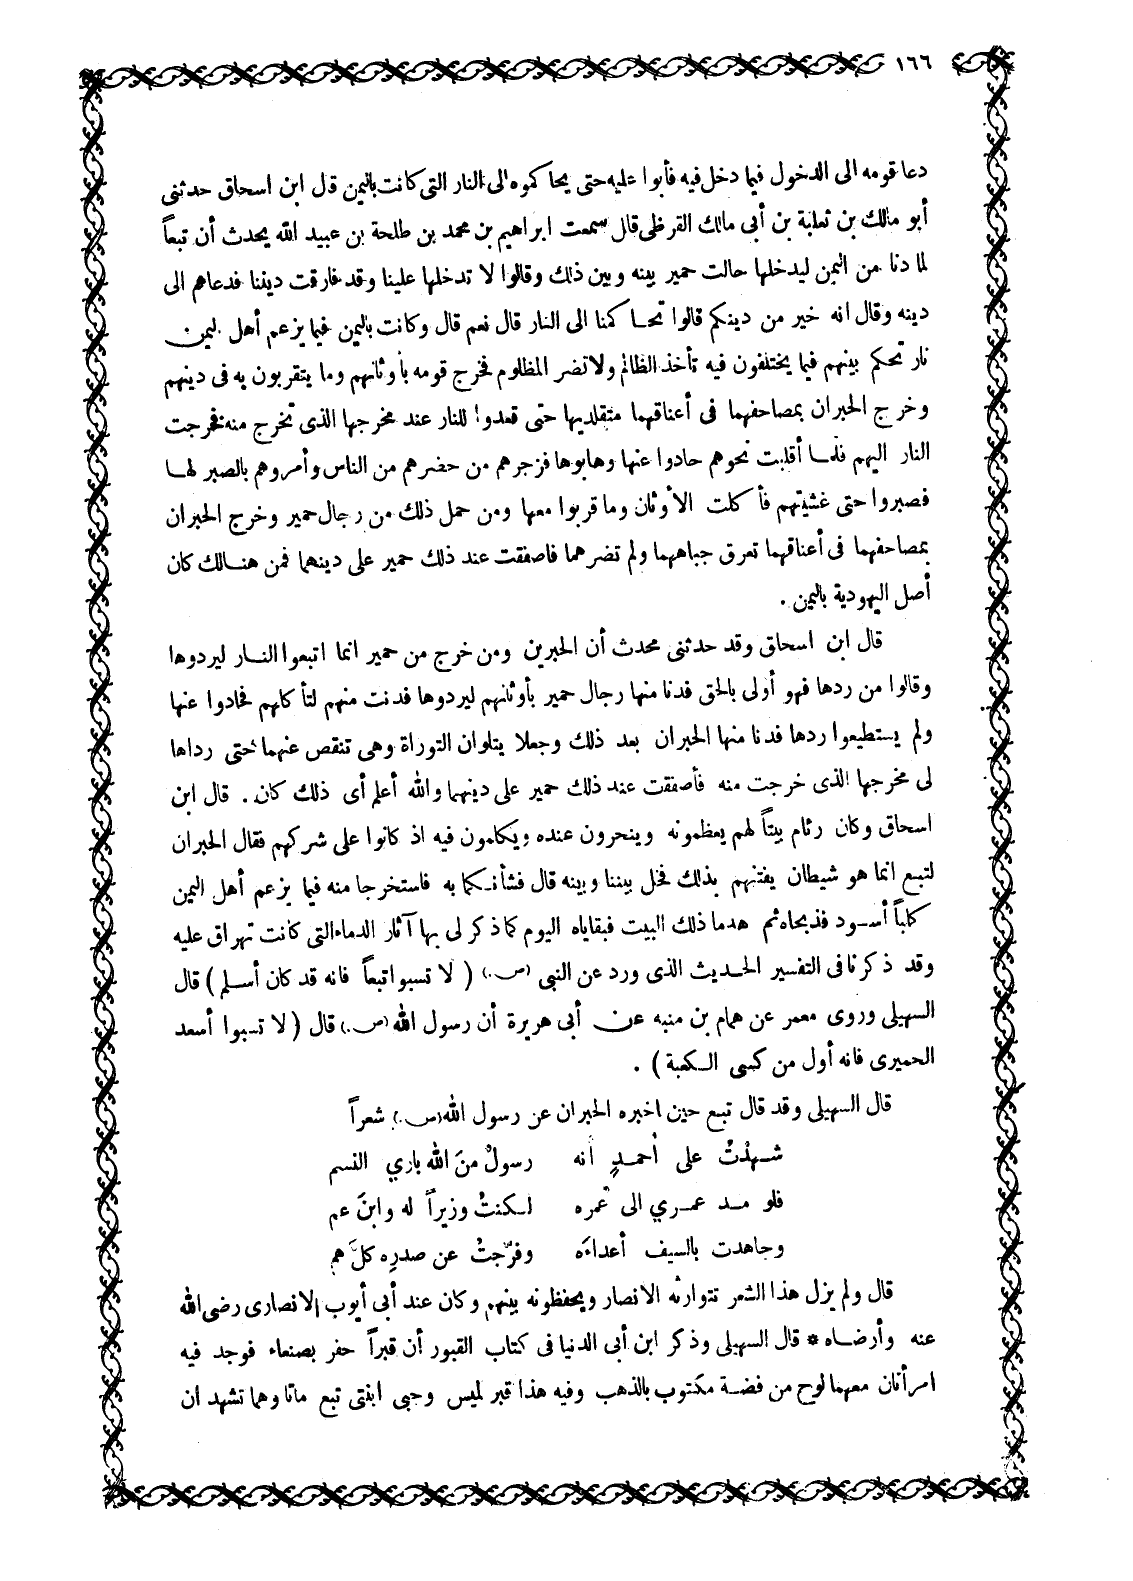 ١٦٦
دعا قومه الى الدخول فيما دخل فيه فأبوا عليه حتى يحاكموه الى النار التى كانت باليمن قال ابن اسحاق حدثنى
أبو مالك بن ثعلبة بن أبى مالك القرظى قال سمعت ابراهيم بن محمد بن طلحة بن عبيد الله يحدث أن تبعاً
لما دنا من اليمن ليدخلها حالت حمير بينه وبين ذلك وقالوا لا تدخلها علينا وقد فارقت ديننا فدعاهم الى
دينه وقال انه خير من دينكم قالوا تحاكمنا الى النار قال نعم قال وكانت باليمن فيما يزعم أهل اليمن
نار تحكم بينهم فيما يختلفون فيه تأخذ الظالم ولا تضر المظلوم فخرج قومه بأوثانهم وما يتقربون به فى دينهم
وخرج الحبران بمصاحفهما فى أعناقهما متقلديها حتى قعدوا للنار عند مخرجها الذى تخرج منه فخرجت
النار اليهم فلما أقبلت نحوهم حادوا عنها وهابوها فزجرهم من حضرهم من الناس وأمروهم بالصبر لها
فصبروا حتى غشيتهم فأكلت الأوثان وما قربوا معها ومن حمل ذلك من رجال حمير وخرج الحبران
بمصاحفهما فى أعناقهما تعرق جباههما ولم تضرهما فاصفقت عند ذلك حمير على دينهما فمن هنالك كان
أصل اليهودية باليمن .
قال ابن اسحاق وقد حدثنى محدث أن الحبرين ومن خرج من حمير انما اتبعوا النار ليردوها
وقالوا من ردها فهو أولى بالحق فدنا منها رجال حمير بأوثانهم ليردوها فدنت منهم لتأكلهم فحادوا عنها
ولم يستطيعوا ردها فدنا منها الحبران بعد ذلك وجعلا يتلوان التوراة وهى تنقص عنهما حتى رداها
لى مخرجها الذى خرجت منه فأصفقت عند ذلك حمير على دينهما والله أعلم أى ذلك كان . قال ابن
اسحاق وكان رئام بيتاً لهم يعظمونه وينحرون عنده ويكلمون فيه اذ كانوا على شركهم فقال الحبران
لتبع انما هو شيطان يفتنهم بذلك فخل بيننا وبينه قال فشأنكما به فاستخرجا منه فيما يزعم أهل اليمن
كلباً أسود فذبحاه ثم هدما ذلك البيت فبقاياه اليوم كما ذكر لى بها آثار الدماء التى كانت تهراق عليه
وقد ذكرنا فى التفسير الحديث الذى ورد عن النبى (ص.) ( لا تسبوا تبعاً فانه قد كان أسلم ) قال
السهيلى وروى معمر عن همام بن منبه عن أبى هريرة أن رسول الله (ص.) قال ( لا تسبوا أسعد
الحميرى فانه أول من كسى الكعبة ) .
قال السهيلى وقد قال تبع حين اخبره الحبران عن رسول الله (ص.) شعراً
شهدْتُ على أحمدٍ أنه رسولٌ منَ الله باري النسم
فلو مد عمري الى عمره لكنتُ وزيراً له وابنَ عم
وجاهدت بالسيف أعداءَه وفرّجتُ عن صدرِه كلَّ هم
قال ولم يزل هذا الشعر تتوارثه الانصار ويحفظونه بينهم وكان عند أبى أيوب الانصارى رضى الله
عنه وأرضاه * قال السهيلى وذكر ابن أبى الدنيا فى كتاب القبور أن قبراً حفر بصنعاء فوجد فيه
امرأتان معهما لوح من فضة مكتوب بالذهب وفيه هذا قبر لميس وحبى ابنتى تبع ماتا وهما تشهد ان